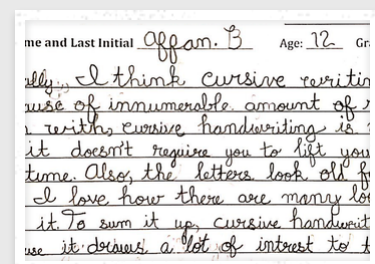 me and Last Initial Affan. B Age: 12 Gr
ally, I think cursive writin
ause of innumerable amount of r
with, cursive handwriting is
it doesn't require you to lift you
time. Also, the letters look old f
I love how there are many lo
it. To sum it up, cursive handwrit
use it draws a lot of interest to t